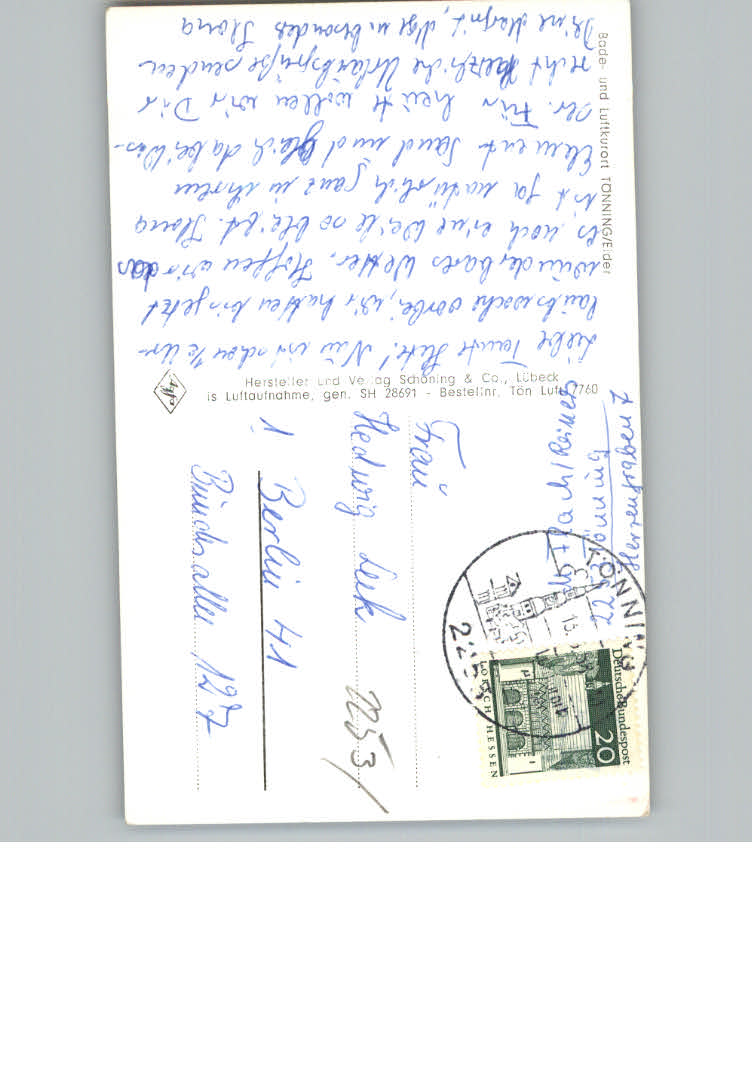 Bade- und Luftkurort TÖNNING/Eider
Liebe Tante Hete! Nun ist schon 1 Ur-
laubswoche vorbei, wir hatten bis jetzt
wunderbares Wetter. Hoffen wir das
es noch eine Weile so bleibt. Ilona
ist ja natürlich ganz in ihrem
Element Sand und gleich dabei Was-
ser. Für heute wollen wir Dir
recht herzliche Urlaubsgrüße senden.
Deine Margit, u. besonders Ilona
Hersteller und Verlag Schöning & Co., Lübeck
is Luftaufnahme, gen. SH 28691 - Bestellnr. Tön Luft 7760
Abs. Flach/Reiner
2253 Tönning
Herrengraben 7
Frau
Hedwig Lenk
1 Berlin 41
Bundesallee 127
2253
2253 TÖNNING
Deutsche Bundespost
20
LORSCH/HESSEN